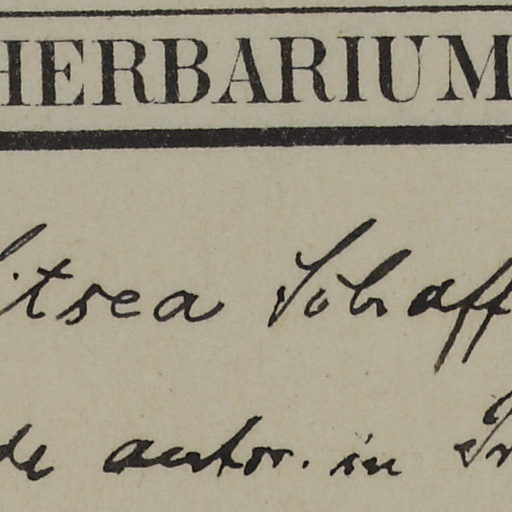 HERBARIUM
Litsea Schaff
de autor. in